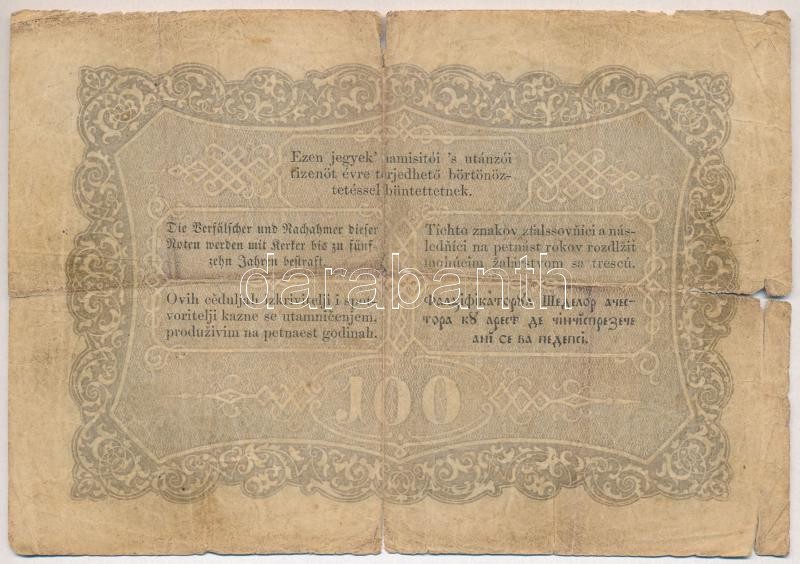 Ezen jegyek' hamisitói 's utánzói
tizenöt évre terjedhető börtönöz-
tetéssel büntettetnek.
Die Verfälscher und Nachahmer dieser
Noten werden mit Kerker bis zu fünf-
zehn Jahren bestraft.
Tíchto znakov zfalssovňíci a nás-
ledňíci na petnást rokov rozdlžiť
mohúcim žalárstvom sa trescú.
Ovih cěduljah izkrivitelji i
voritelji kazne se utamničenjem,
produživim na petnaest godinah.
Фалзіфікаторіл Шеделор ачес-
тора кꙋ арест де чінчіспрезече
ані се ва педепсі.
100
darabanth